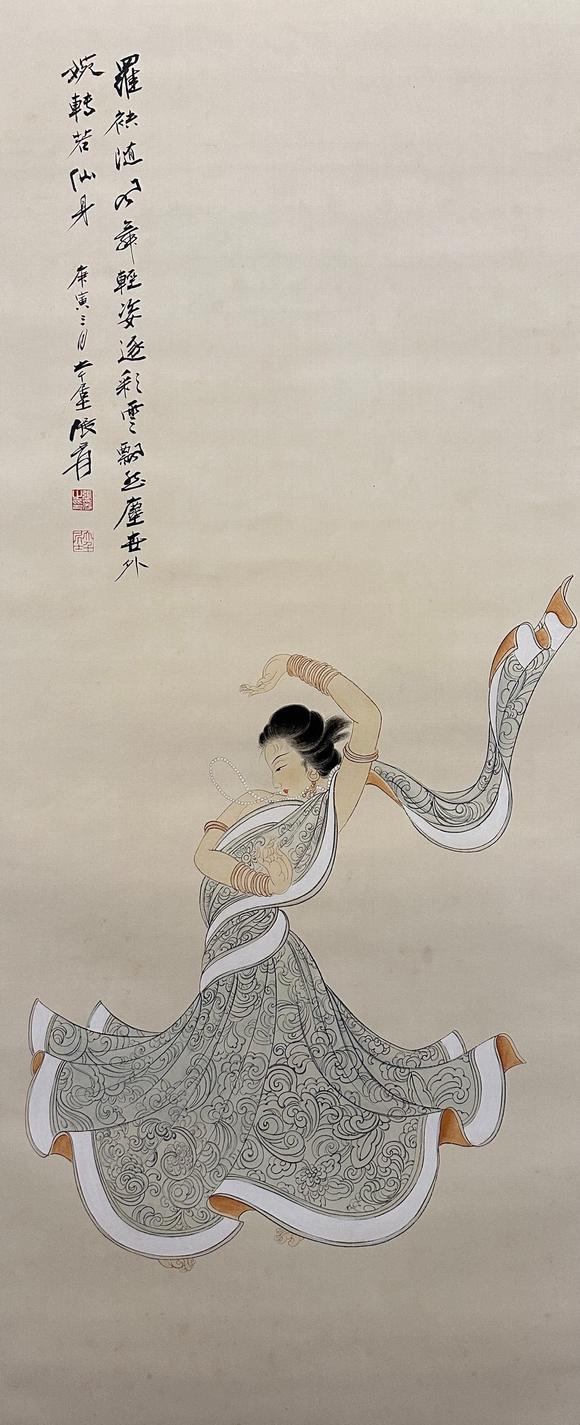 羅袂随風舞輕姿逐彩雲飄然塵世外
婉轉若仙身
庚寅三月 張爰
大千居士